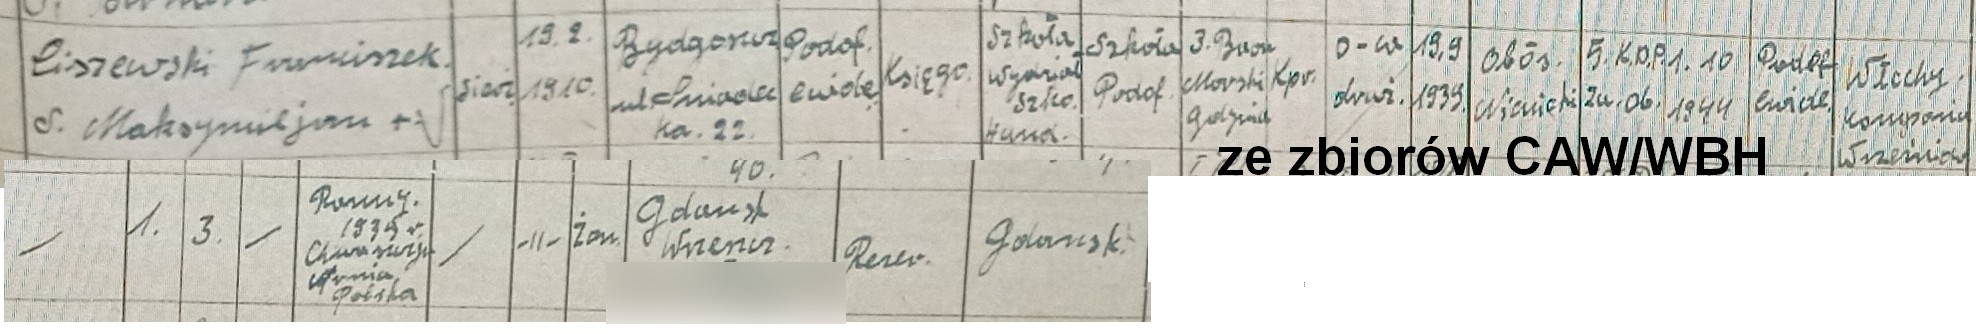 Liszewski Franciszek.
s. Maksymiljan +
sierż.
19.2.
1910.
Bydgoszcz
ul. Śniadec
ka. 22.
Podof.
ewide.
Księgo.
Szkoła
Wydział
Szko.
Hand.
Szkoła
Podof.
3. Baon
Morski
Gdynia
Kpr.
D-ca
druż.
19,9
1939.
Obóz.
Niemiecki
5. K.D.P.
Zw. Ob.
1. 10
1944
Podof
ewide.
Włochy.
Kompania
ze zbiorów CAW/WBH
—
1.
3.
—
Ranny.
1939 r.
Armia
Polska
/
-11-
Żon.
40.
Gdańsk
Wrzeszcz.
Rezer.
Gdańsk.